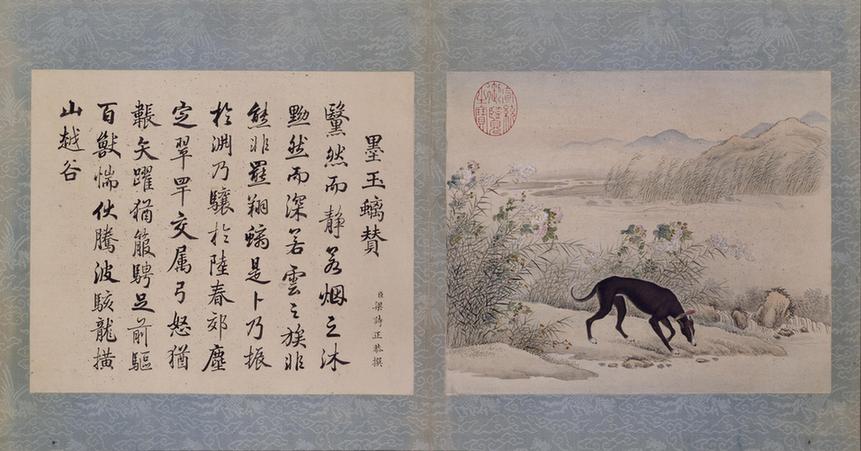 乾隆御覽之寶
墨玉螭賛
臣梁詩正恭撰
黳然而静若烟之沐
黝然而深若雲之族非
熊非羆翔螭是卜乃振
於淵乃驤於陸春郊塵
定翠罕交属弓怒猶
韔矢躍猶箙騁足前驅
百獸惴伏騰波駭龍橫
山越谷